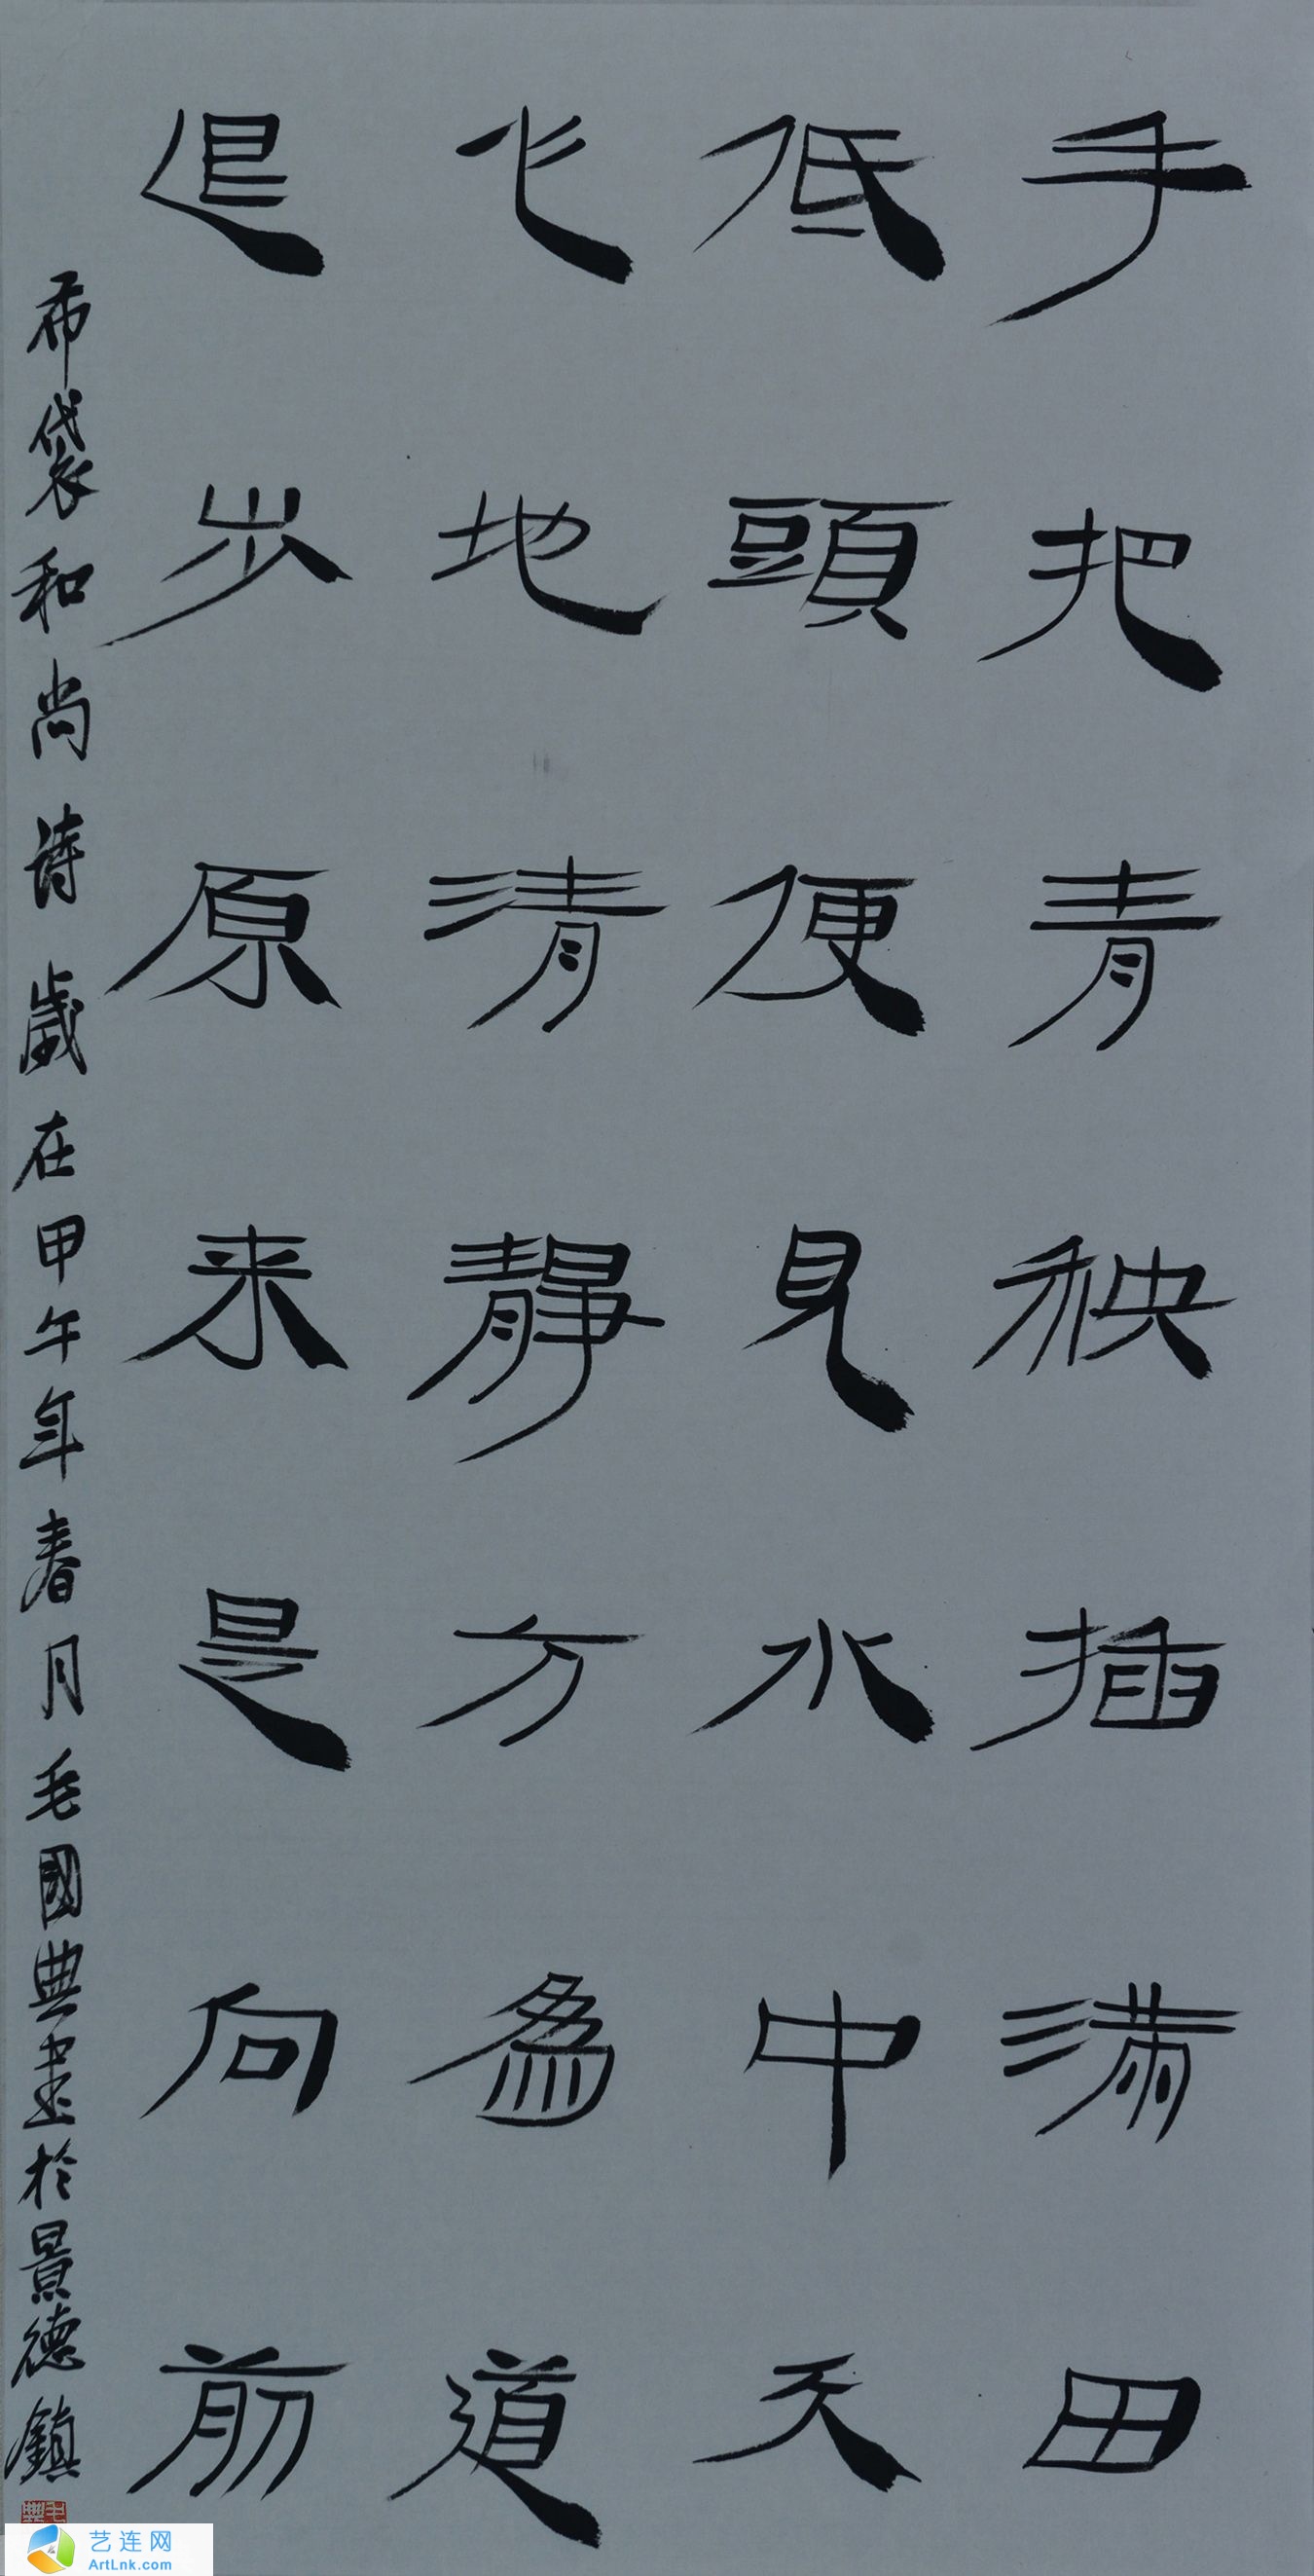 手把青秧插满田
低頭便見水中天
心地清靜方為道
退步原来是向前
布袋和尚诗歲在甲午年春月毛國典書於景德鎮
艺连网
ArtLnk.com